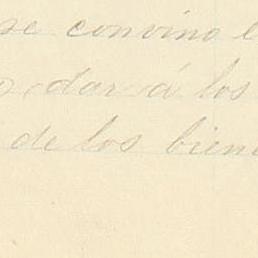 se convino e
dar á los
de los biene